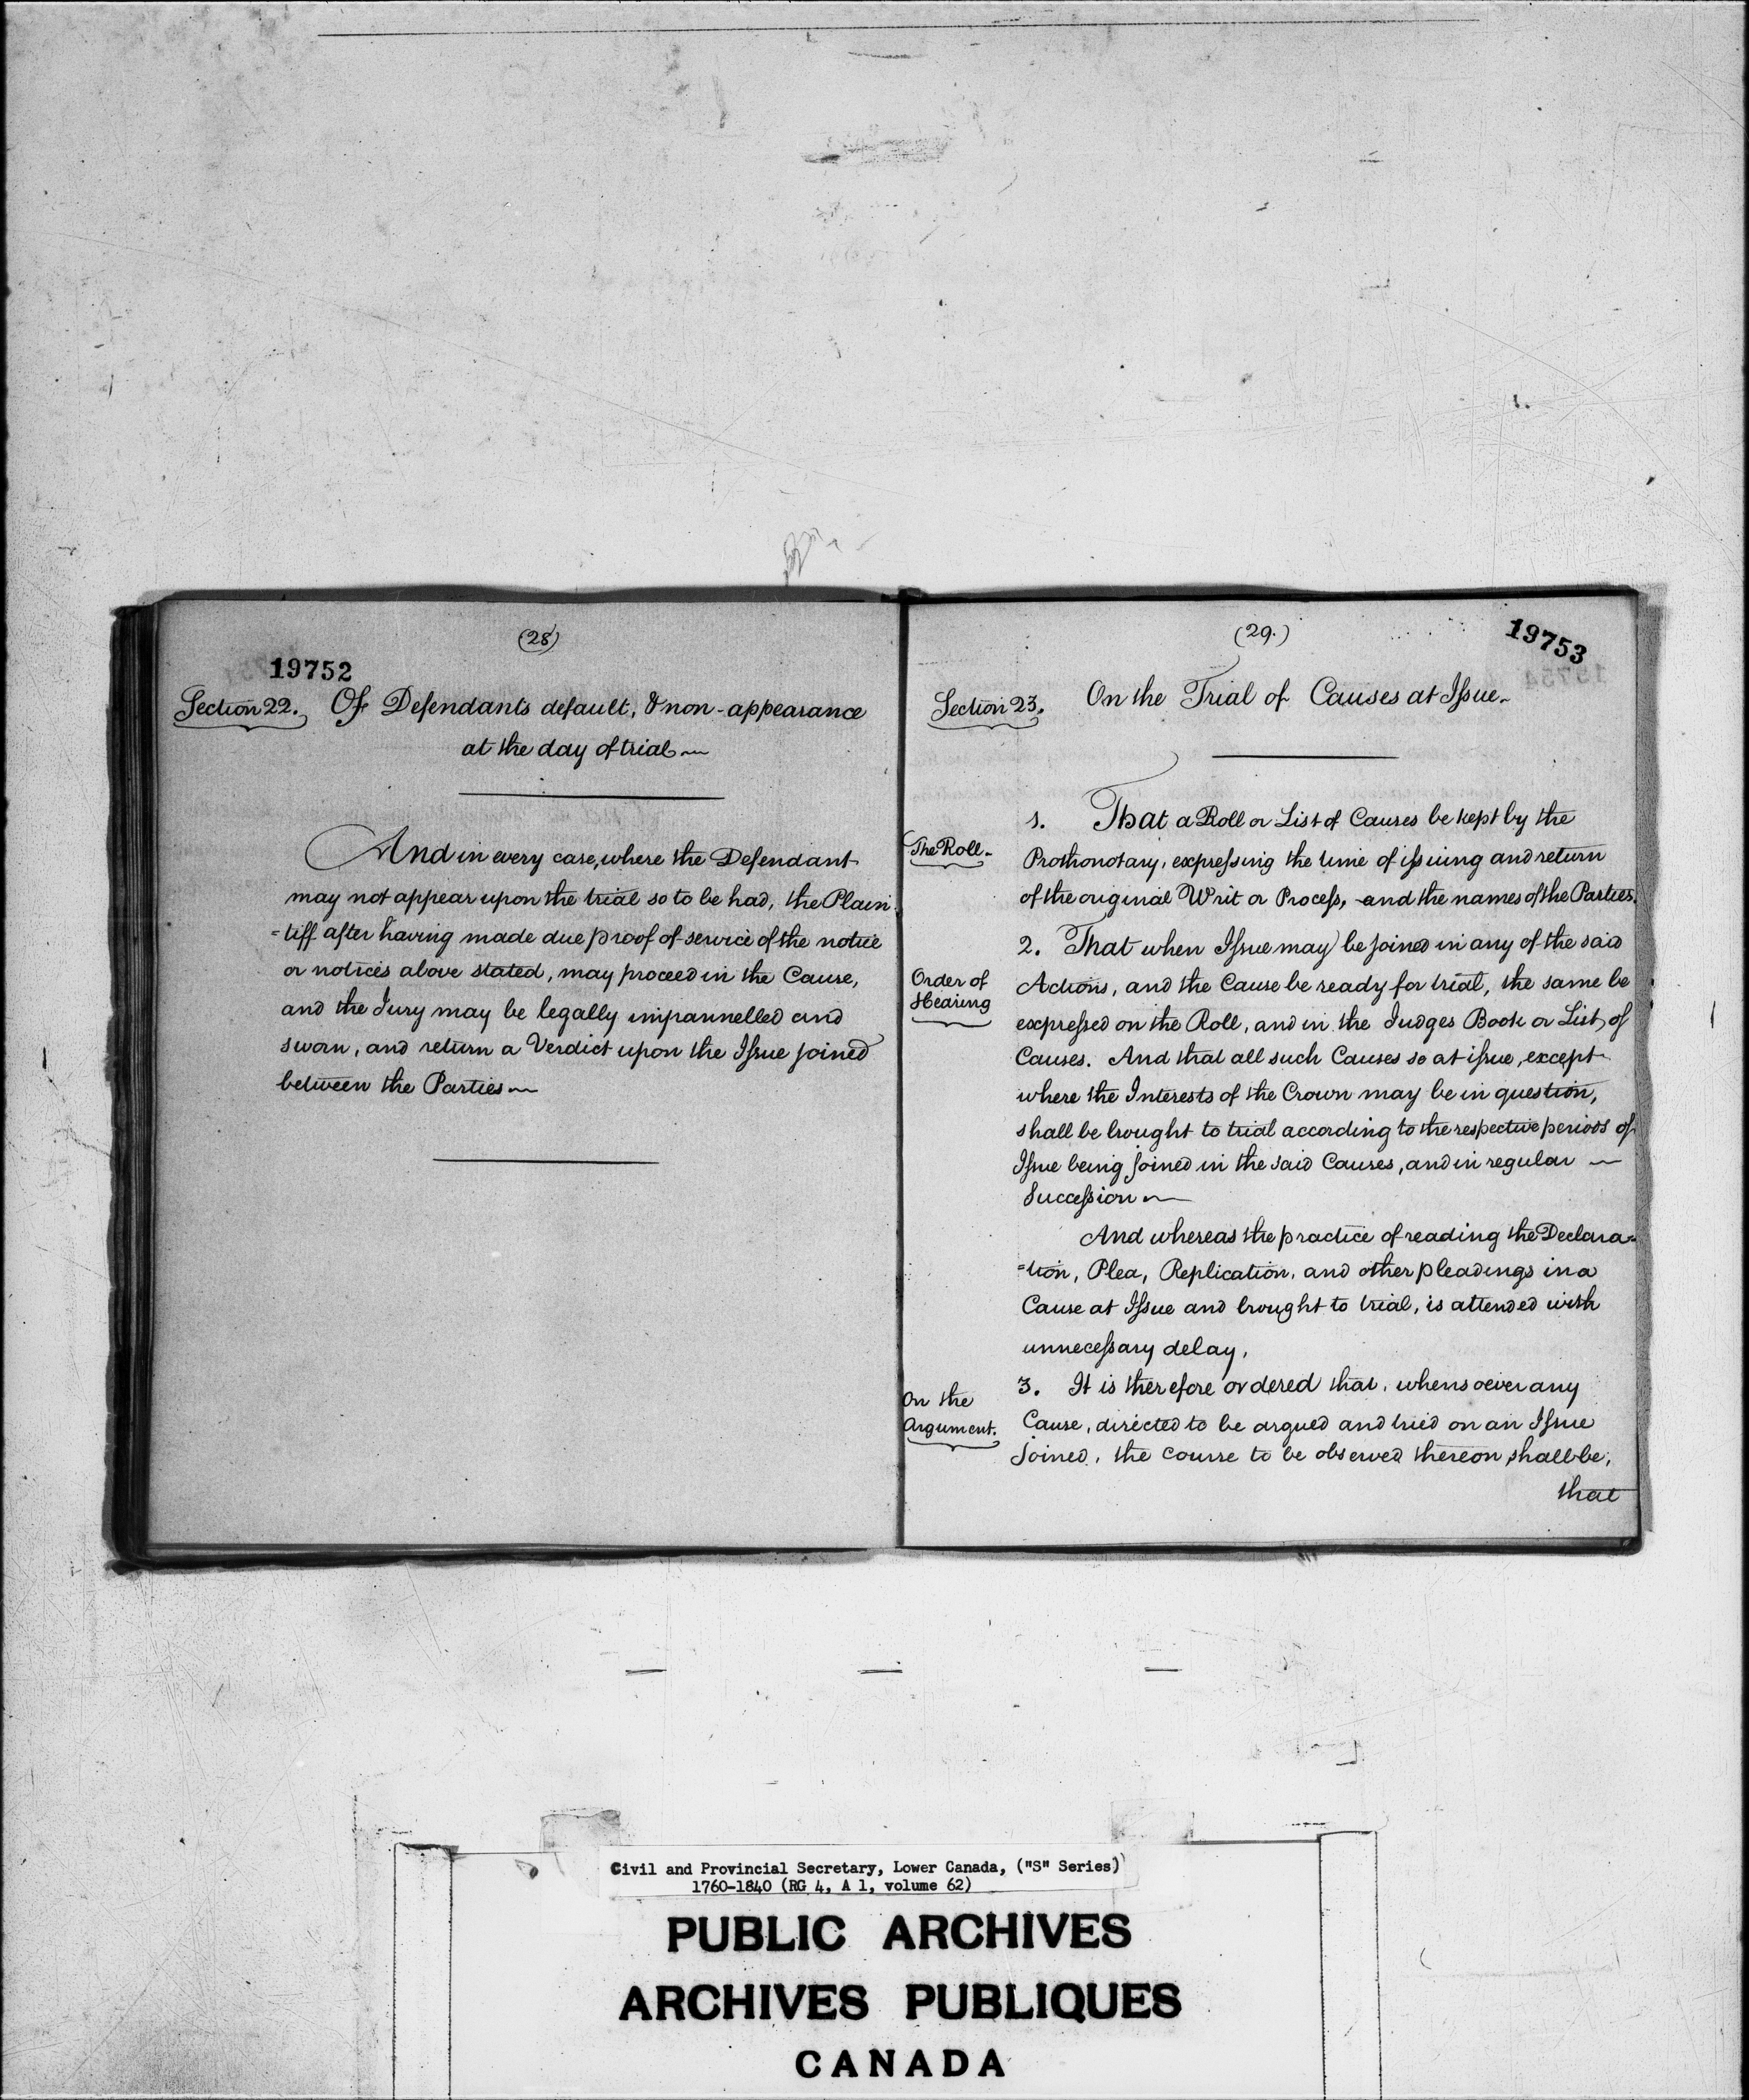 (28)
19752
Section 22. Of Defendants default, & non-appearance
at the day of trial
And in every case, where the Defendant
may not appear upon the trial so to be had, the Plain
=tiff after having made due proof of service of the notice
or notices above stated, may proceed in the Cause,
and the Jury may be legally impannelled and
sworn, and return a Verdict upon the Issue joined
between the Parties
(29.)
19753
Section 23. On the Trial of Causes at Issue
The Roll
1. That a Roll or List of Causes be kept by the
Prothonotary, expressing the time of issuing and return
of the original Writ or Process, and the names of the Parties.
2. That when Issue may be joined in any of the said
Order of
Hearing
Actions, and the Cause be ready for trial, the same be
expressed on the Roll, and in the Judges Book or List of
Causes. And that all such Causes so at issue, except
where the Interests of the Crown may be in question,
shall be brought to trial according to the respective periods of
Issue being joined in the said Causes, and in regular
Succession
And whereas the practice of reading the Declara=
=tion, Plea, Replication, and other pleadings in a
Cause at Issue and brought to trial, is attended with
unnecessary delay,
On the
Argument.
3. It is therefore ordered that, whensoever any
Cause, directed to be argued and tried on an Issue
Joined, the course to be observed thereon shall be,
that
Civil and Provincial Secretary, Lower Canada, ("S" Series)
1760-1840 (RG 4, A 1, volume 62)
PUBLIC ARCHIVES
ARCHIVES PUBLIQUES
CANADA